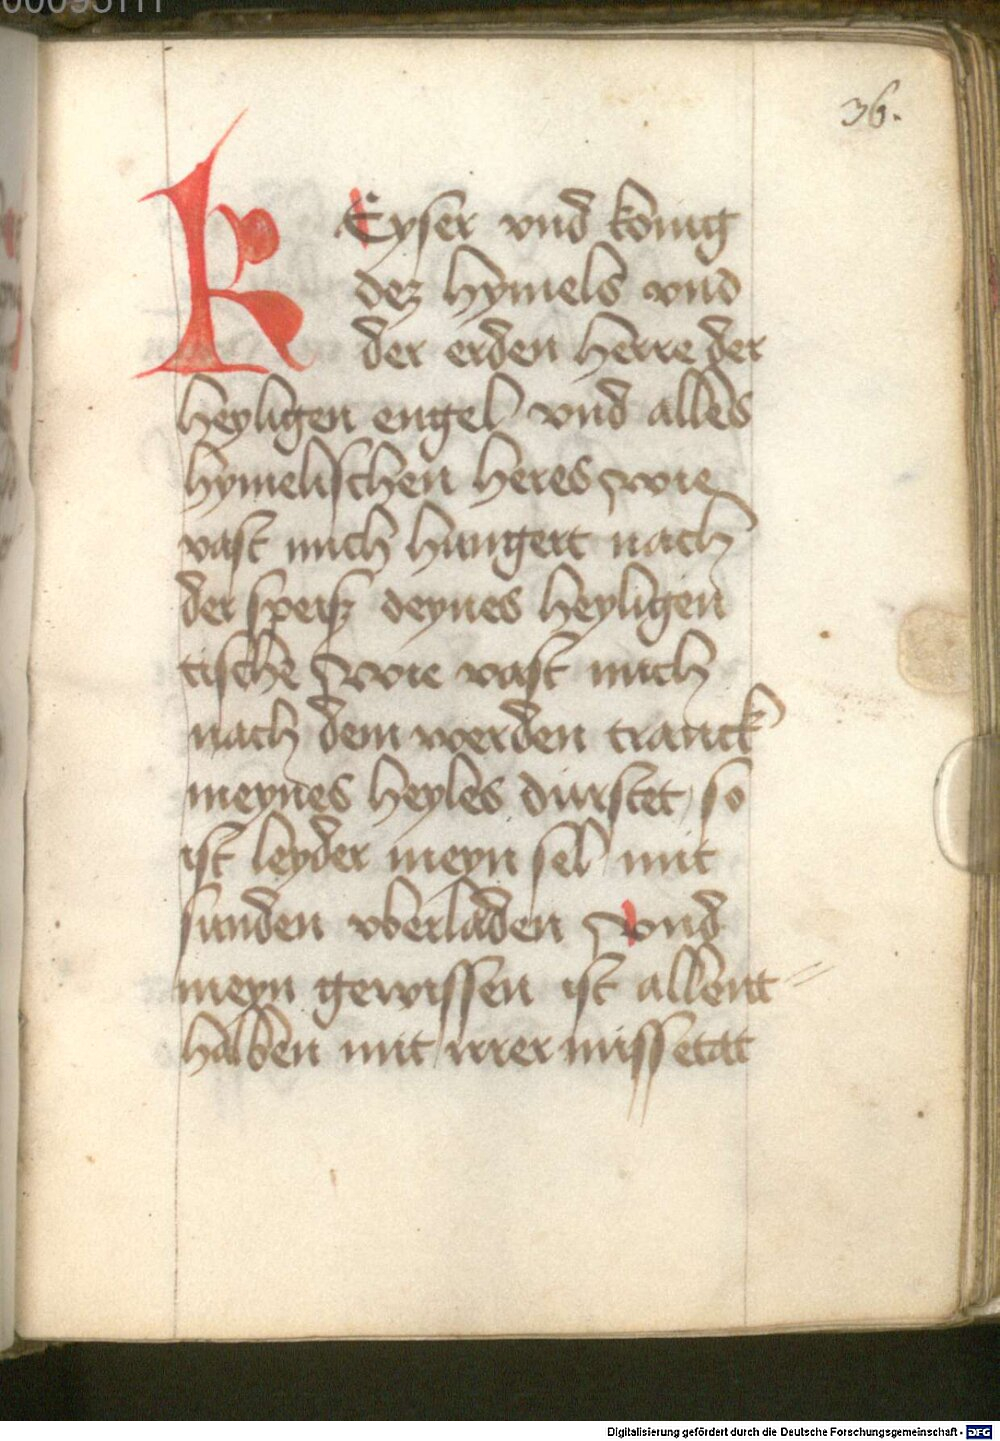 36.
KEyser vnd konig
dez hymels vnd
der erden herre der
heyligen engel vnd alles
hymelischen heres wie
vast mich hungert nach
der speisz deynes heyligen
tische wie vast mich
nach dem werden tranck
meynes heyles durstet so
ist leyder meyn sel mit
sunden vberladen vnd
meyn gewissen ist allent=
halben mit irrer missetat
Digitalisierung gefördert durch die Deutsche Forschungsgemeinschaft - DFG